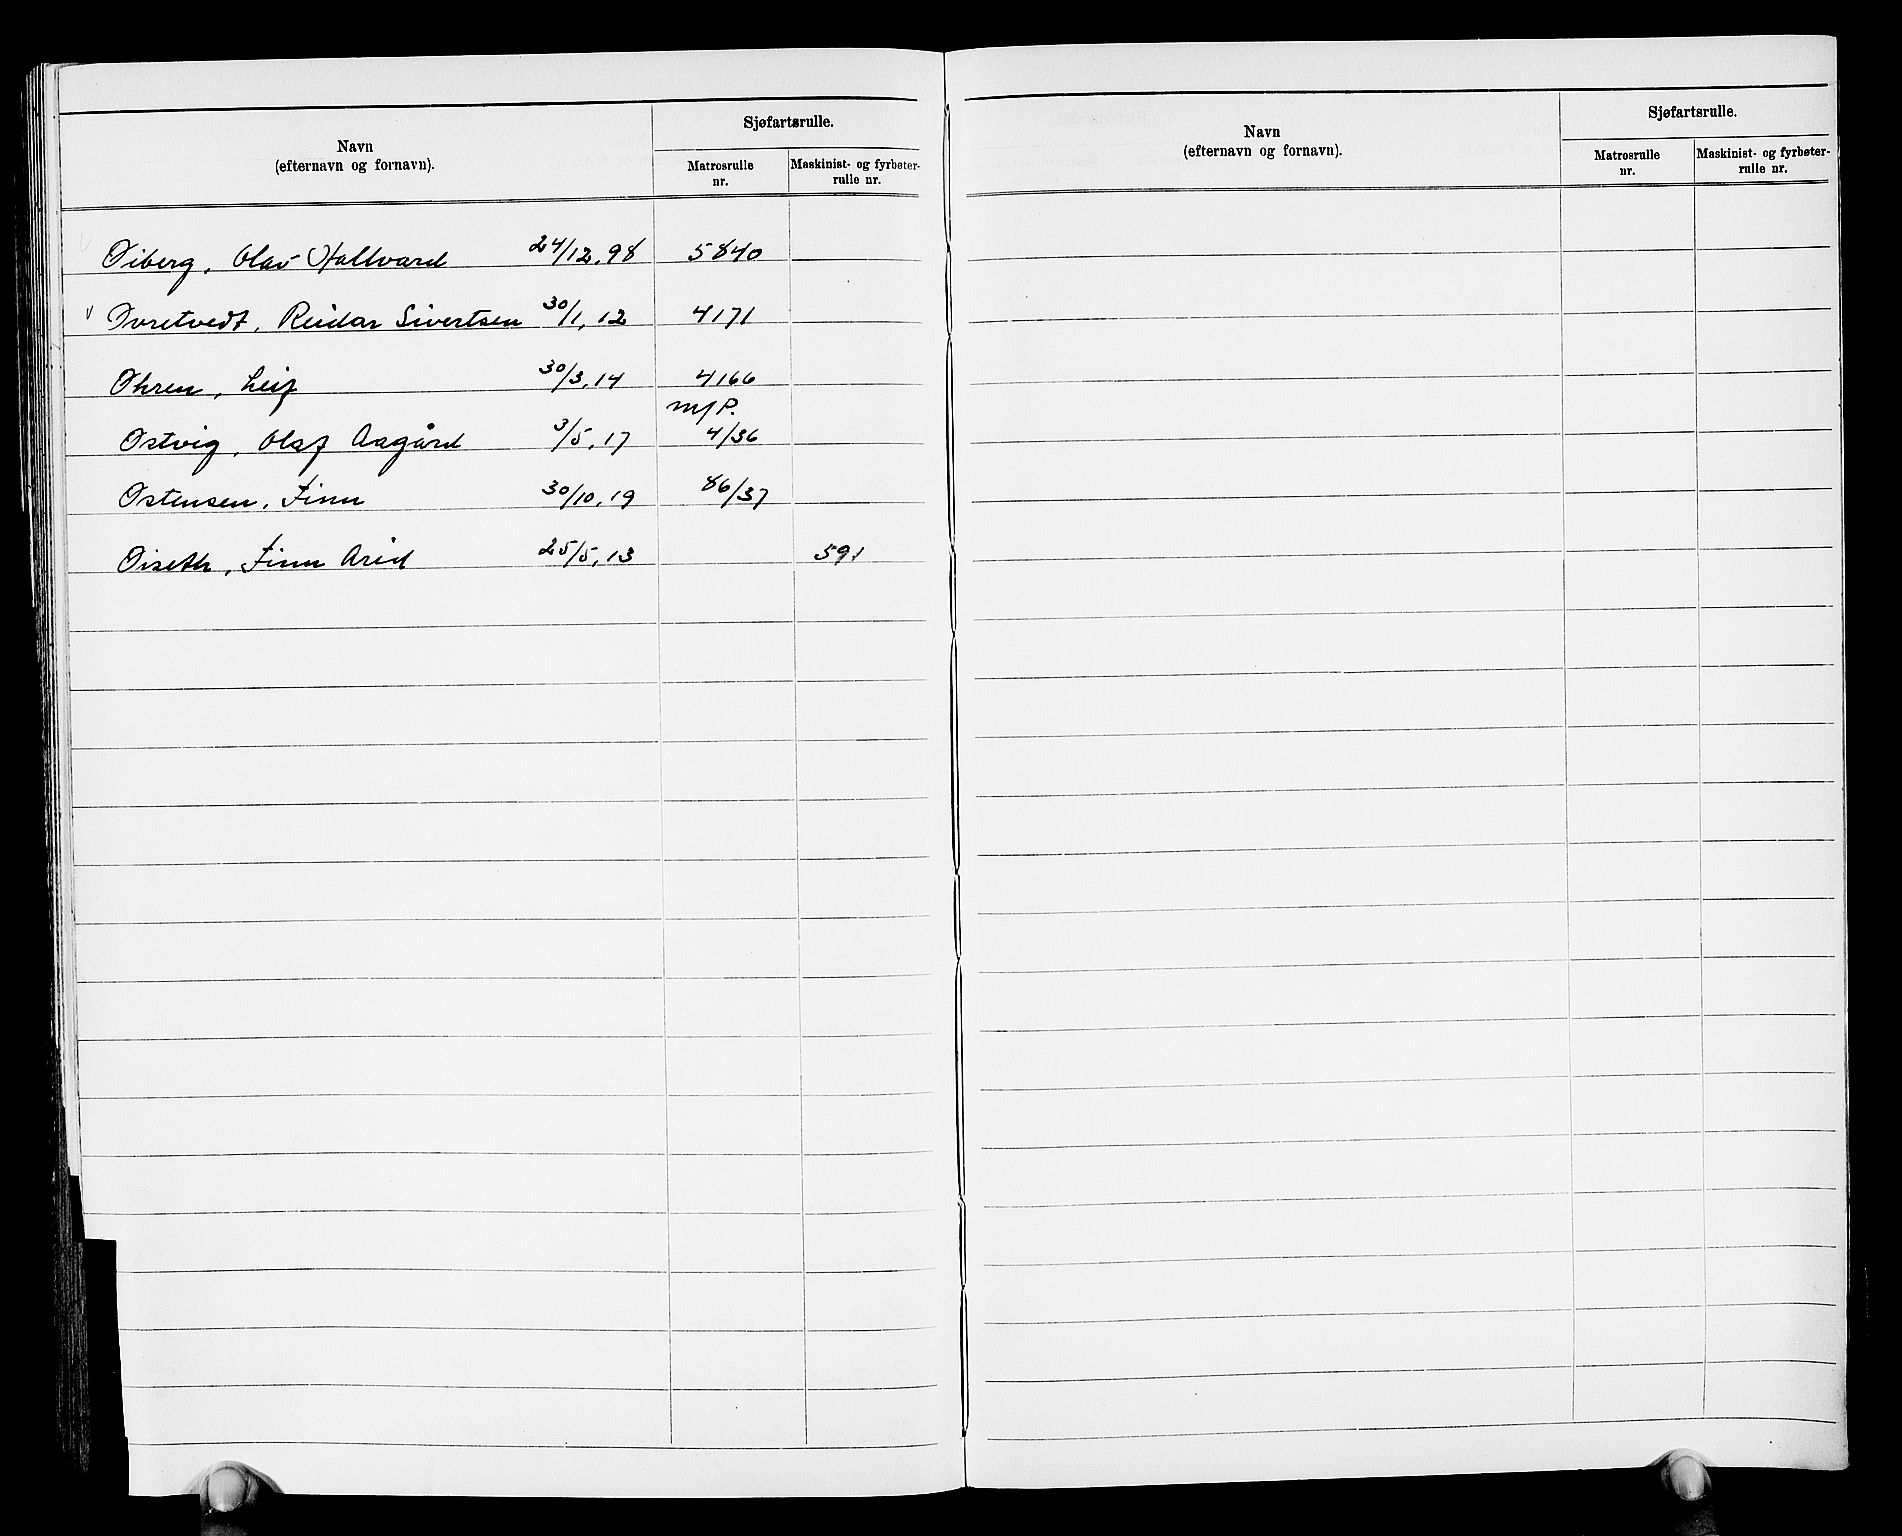 Sjøfartsrulle.
Navn
(efternavn og fornavn).
Matrosrulle
nr.
Maskinist- og fyrbøter-
rulle nr.
Øiberg, Olav Hallvard 24/12, 98 5840
v Øvretvedt, Reidar Sivertsen 30/1, 12 4171
Øhren, Leif 30/3, 14 4166
m/P.
Østvig, Olaf Aagård 3/5, 17 4/36
Østensen, Finn 30/10, 19 86/37
Øiseth, Finn Arid 25/5, 13 591
Sjøfartsrulle.
Navn
(efternavn og fornavn).
Matrosrulle
nr.
Maskinist- og fyrbøter-
rulle nr.